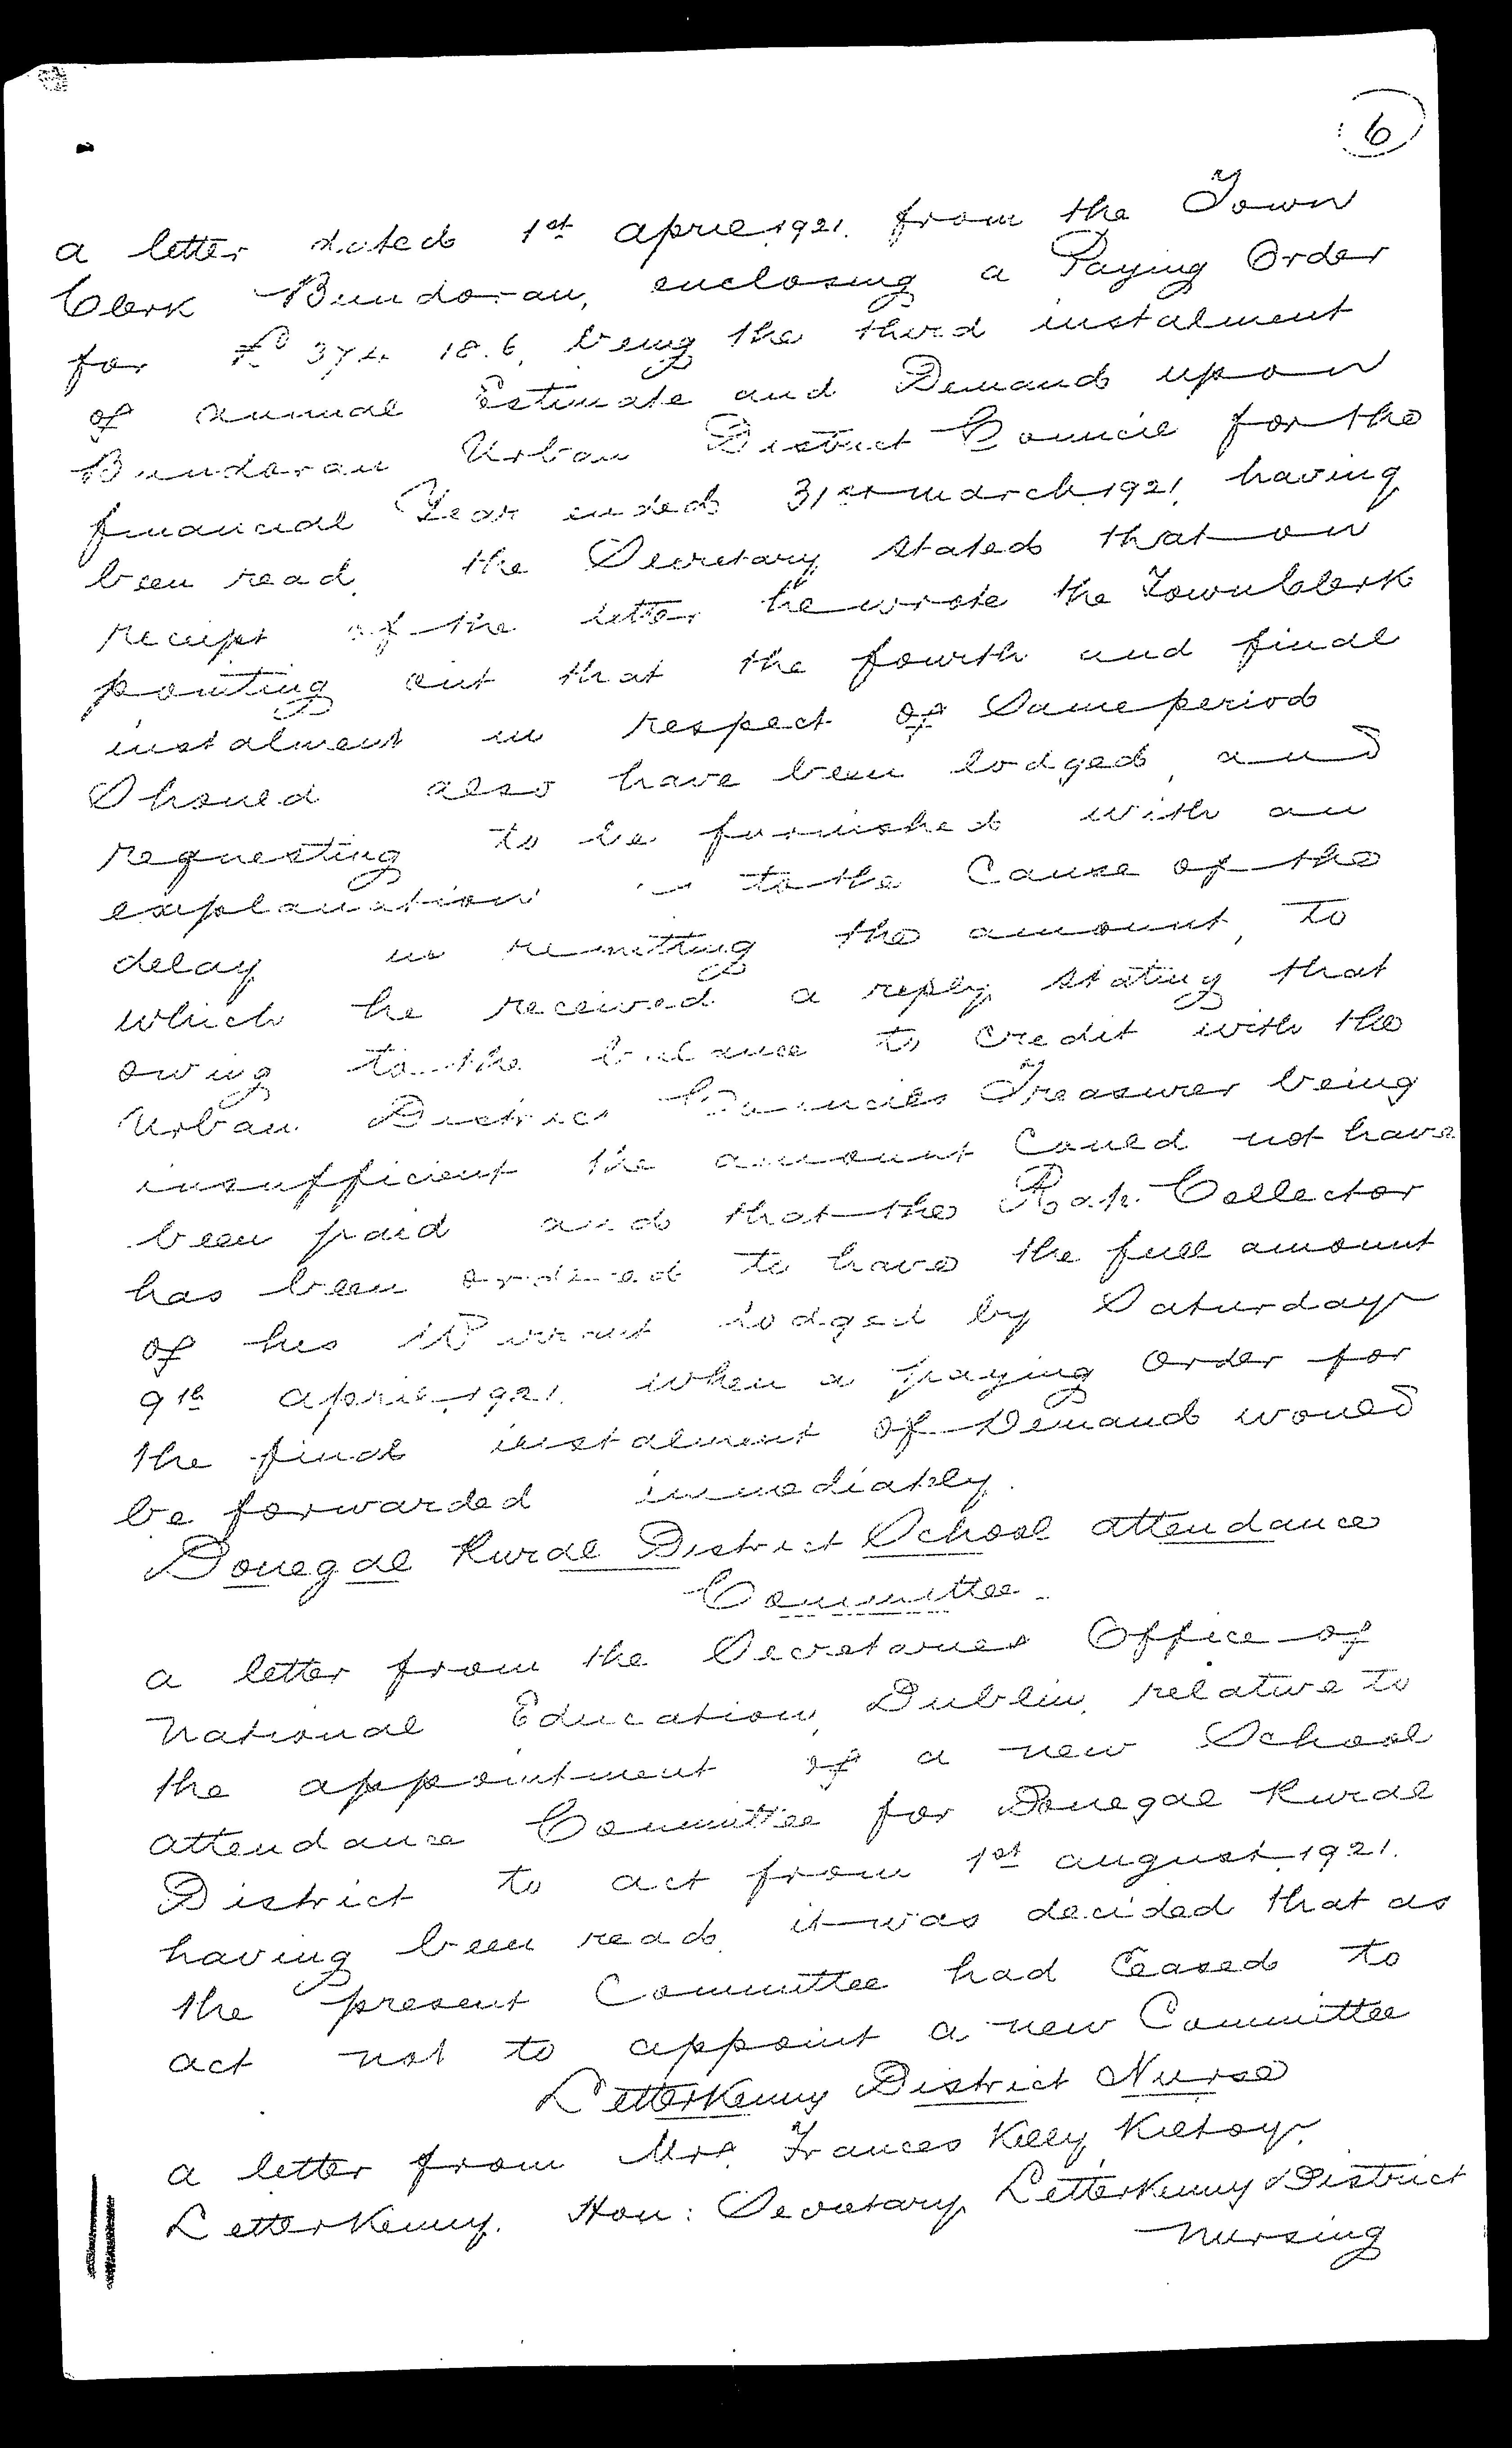 6
a letter dated 1st april, 1921. from the Town
Clerk Bundoran, enclosing a Paying Order
for £374 18. 6, being the third instalment
of annual Estimate and Demand upon
Bundoran Urban District Council for the
financial Year ended 31st march, 1921, having
been read, the Secretary stated that on
receipt of the letter he wrote the Town Clerk
pointing out that the fourth and final
instalment in respect of Same period
Should also have been lodged, and
requesting to be furnished with an
explanation as to the Cause of the
delay in remitting the amount, to
which he received a reply stating that
owing to the balance to Credit with the
Urban District Councils Treasurer being
insufficient the amount Could not have
been paid and that the Rate Collector
has been ordered to have the full amount
of his Warrant lodged by Saturday
9th april, 1921. when a paying Order for
the final instalment of Demand would
be forwarded immediately.
Donegal Rural District School attendance
Committee.
a letter from the Secretaries Office of
National Education, Dublin, relative to
the appointment of a new School
attendance Committee for Donegal Rural
District to act from 1st august, 1921.
having been read, it was decided that as
the present Committee had Ceased to
act not to appoint a new Committee
Letterkenny District Nurse
a letter from Mrs. Frances Kelly, Kiltoy,
Letterkenny. Hon: Secretary, Letterkenny District
Nursing